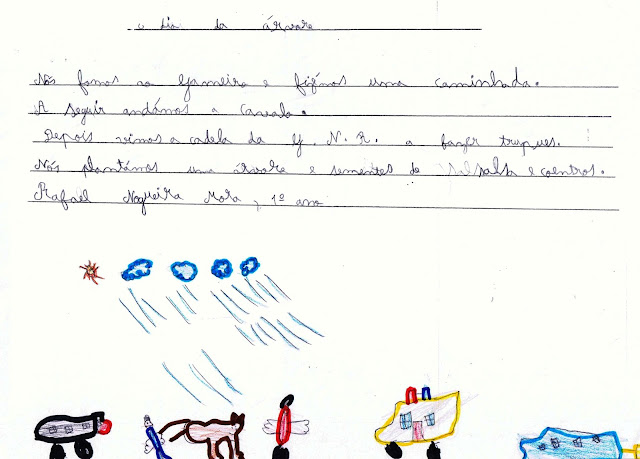 o dia da árvore
Nós fomos ao Gameiro e fizémos uma caminhada.
A seguir andámos a cavalo.
Depois vimos a cadela da G. N. R. a fazer truques.
Nós plantámos uma árvore e sementes de salsa e coentros.
Rafael Nogueira Mora, 1º ano